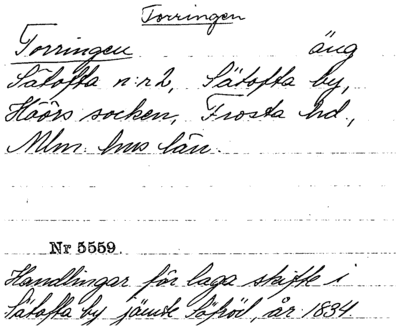 Torringen
Torringen äng
Sätofta n:r 2, Sätofta by,
Höörs socken, Frosta hd.,
Mlm. hus län.
Nr 5559
Handlingar för laga skifte i
Sätofta by jämte
år 1834